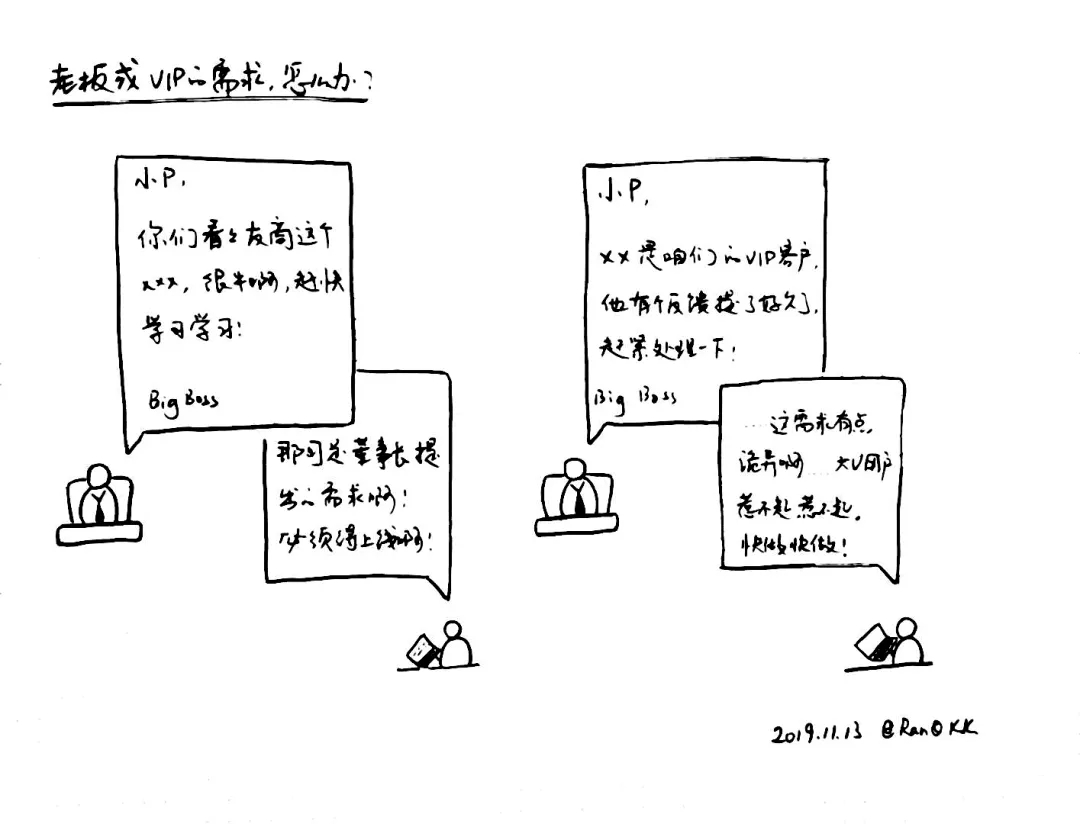 老板或VIP的需求,怎么办?
小P,
你们看看友商这个
xxx,很牛啊,赶快
学习学习!
Big Boss
那可是董事长提
出的需求啊!
必须得上线啊!
小P,
xx是咱们的VIP客户,
他有个反馈提了好久了,
赶紧处理一下!
Big Boss
……这需求有点
诡异啊……大V用户
惹不起惹不起。
快做快做!
2019.11.13 @Ran@KK